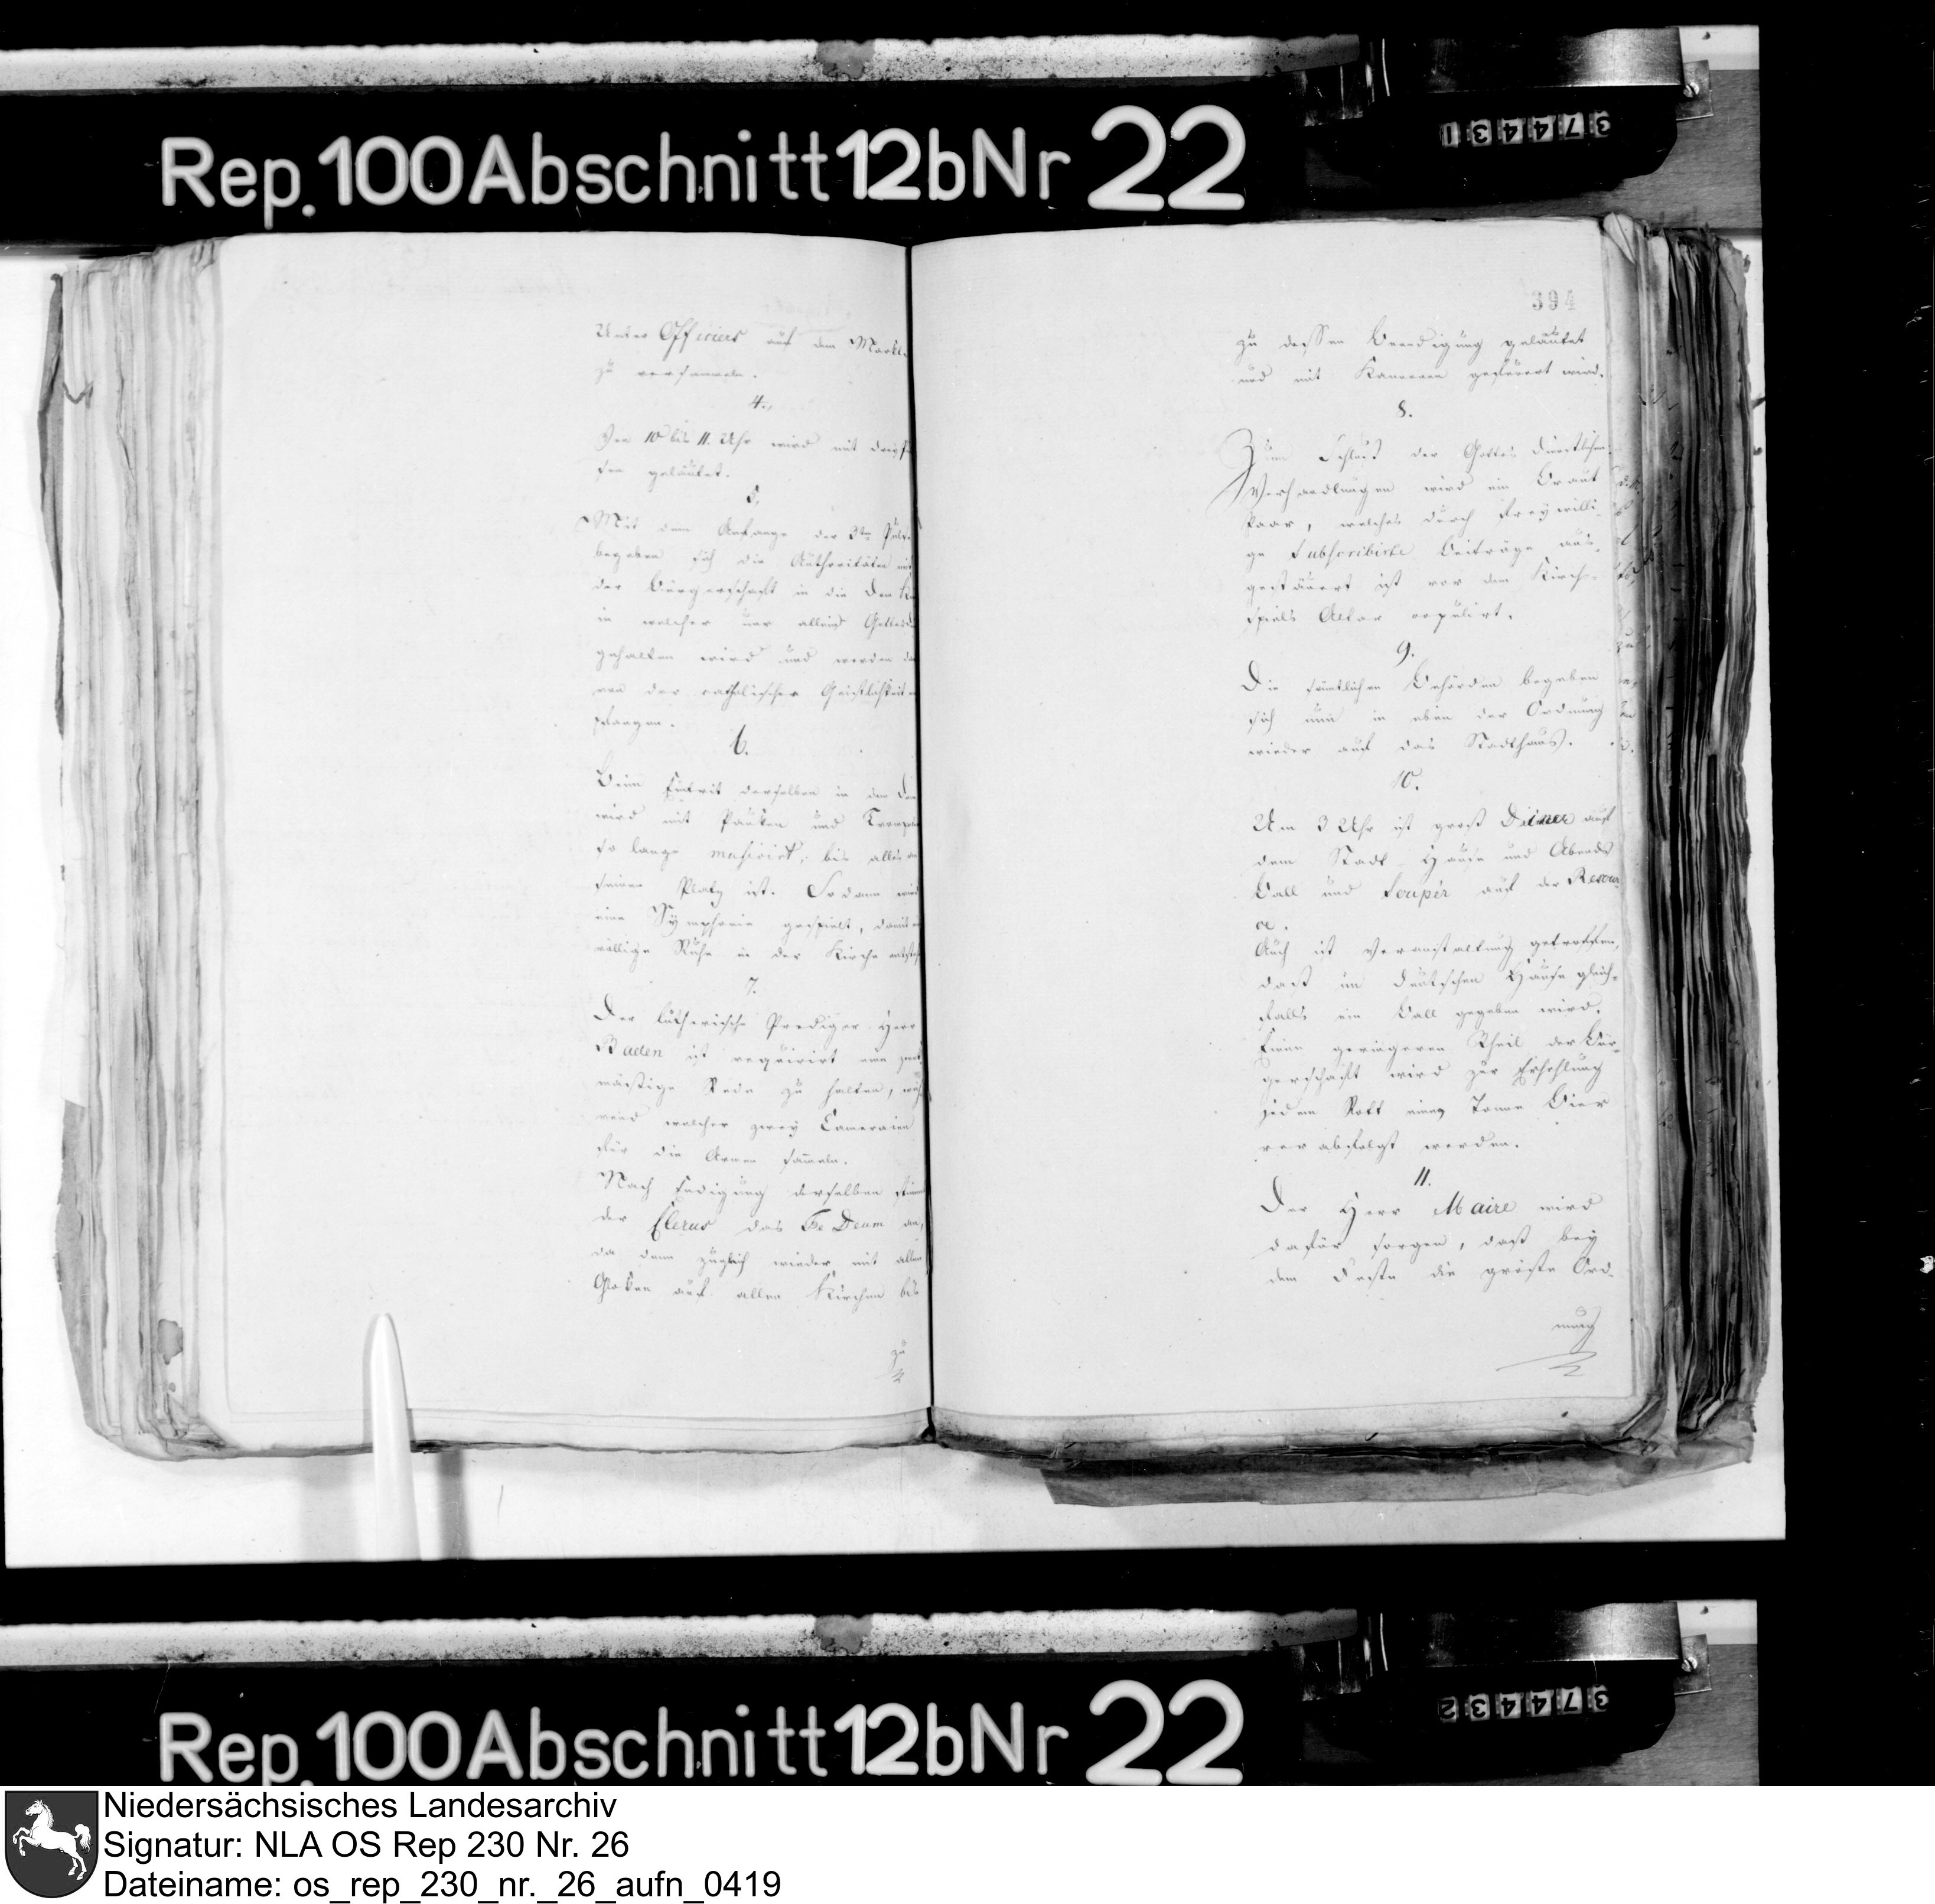 Rep. 100 Abschnitt 12b Nr 22
374431
Unter Officiers auf dem Markt
zu versammeln.
4.
Von 10 bis 11. Uhr wird mit
sen geläutet.
5.
Mit dem Anfange der 3ten
begeben sich die Authoritäten mit
der Bürgerschaft in die
in welcher nur allein
gehalten wird und werden
von der catholischen Geistlichkeit
pfangen.
6.
Beim Eintrit derselben in den
wird mit Pauken und
so lange musicirt, bis alles
seinen Platz ist. Sodann wird
eine Symphonie gespielt, damit
völlige Ruhe in der Kirche
7.
Der lutherische Prediger Herr
Baden ist requirirt eine
mäsige Rede zu halten,
rend welcher zwey
für die Armen sammeln.
Nach Endigung derselben
der Clerus das Te Deum an,
da dann zugleich wieder mit allen
Gloken auf allen Kirchen bis
zu
394
zu dessen Beendigung geläutet
und mit Kanonen gefeuert wird.
8.
Zum Schluß der Gottes dienstlichen
Verhandlungen wird ein Braut
Paar, welches durch freywilli-
ge subscribirte Beiträge aus-
gesteuert ist vor dem Kirch-
spiels Altar copulirt.
9.
Die sämtlichen Behörden begeben
sich nun in eben der Ordnung
wieder auf das Stadthaus.
10.
Um 3 Uhr ist groß Diner auf
dem Stadt Hause und Abends
Ball und Soupér auf der Resour
ce.
Auch ist Veranstaltung getroffen,
daß im deutschen Hause gleich-
falls ein Ball gegeben wird.
Einem geringeren Theil der Bür-
gerschaft wird zur Erhohlung
jedem Rott eine Tonne Bier
verabfolgt werden.
11.
Der Herr Maire wird
dafür sorgen, daß bey
dem Feste die gröste Ord-
nung
Rep. 100 Abschnitt 12b Nr 22
374432
Niedersächsisches Landesarchiv
Signatur: NLA OS Rep 230 Nr. 26
Dateiname: os_rep_230_nr._26_aufn_0419